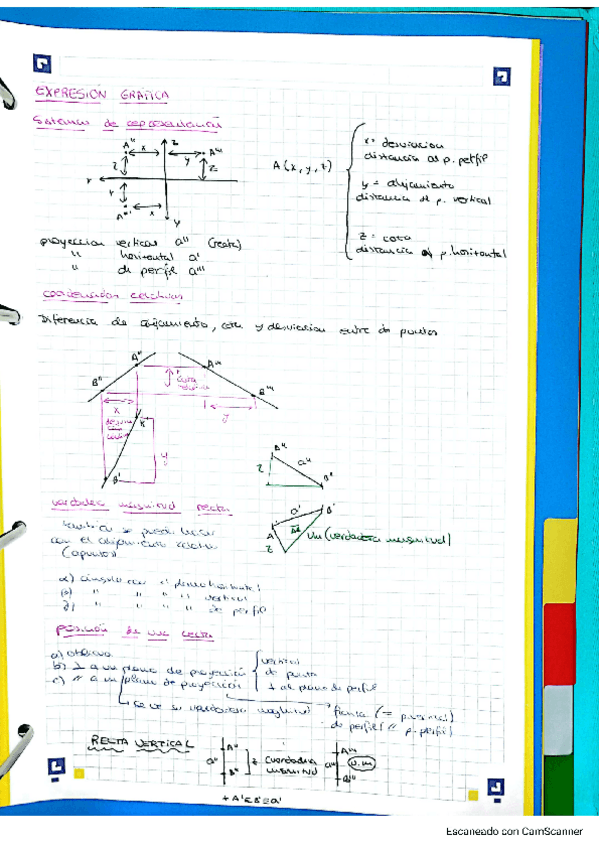 EXPRESIÓN GRÁFICA
Sistemas de representación
A'' x z y A'''
z z
x
y
A' x y
A (x, y, z)
x = desviación
distancia al p. perfil
y = alejamiento
distancia al p. vertical
z = cota
distancia al p. horizontal
proyeccion vertical a'' (recta)
" horizontal a'
" de perfil a'''
coordenadas relativas
Diferencia de alejamiento, cota y desviacion entre dos puntos
A'' A'''
B'' cota relativa B'''
x y
y
B'
B'' a''
z
verdadera magnitud recta
a' B'
A
z
VM (verdadera magnitud)
tambien se puede hacer
con el alejamiento relativo
(apuntes)
α) ángulo con el plano horizontal
β) " " " " vertical
γ) " " " " de perfil
posición de una recta
a) oblicua
b) ⊥ a un plano de proyección
c) // a un plano de proyección
vertical
de punta
⊥ al plano de perfil
se ve su verdadera magnitud
de perfil // p. perfil)
RECTA VERTICAL
A'' A'''
a'' z (verdadera magnitud) a''' v.m
B''
A' ≡ B' ≡ a'
Escaneado con CamScanner